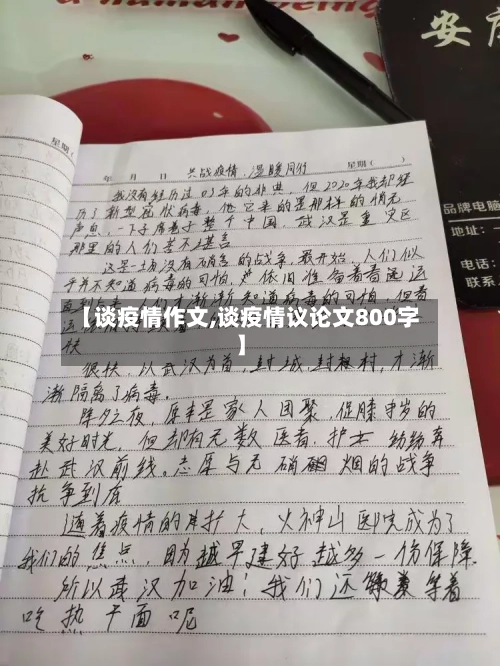 a human being
安
品牌电
地址:一
联系
星期(
年 月 日 共战疫情,温暖同行 星期( )
我没有经历过03年的非典,但2020年我却经
历了新型冠状病毒,他它来的是那样的悄无
声息,一下子席卷了整个中国,武汉是重灾区
那里的人们苦不堪言
这是一场没有硝烟的战争,最开始,人们似
乎并不知道病毒的可怕,依旧准备着着
知道病毒的可怕
【谈疫情作文,谈疫情议论文800字
】
快
很快,以武汉为首,封城,封村,才渐
渐隔离了病毒。
除夕之夜,原本是家人团聚,促膝守岁的
美好时光,但却有无数医者,护士纷纷奔
赴武汉前线。志愿与无硝烟的战争
抗争到底
随着疫情的扩大,火神山医院成为了
我们的焦点,因为越早建好越多一份保障
所以武汉加油!我们还等着
吃热干面呢